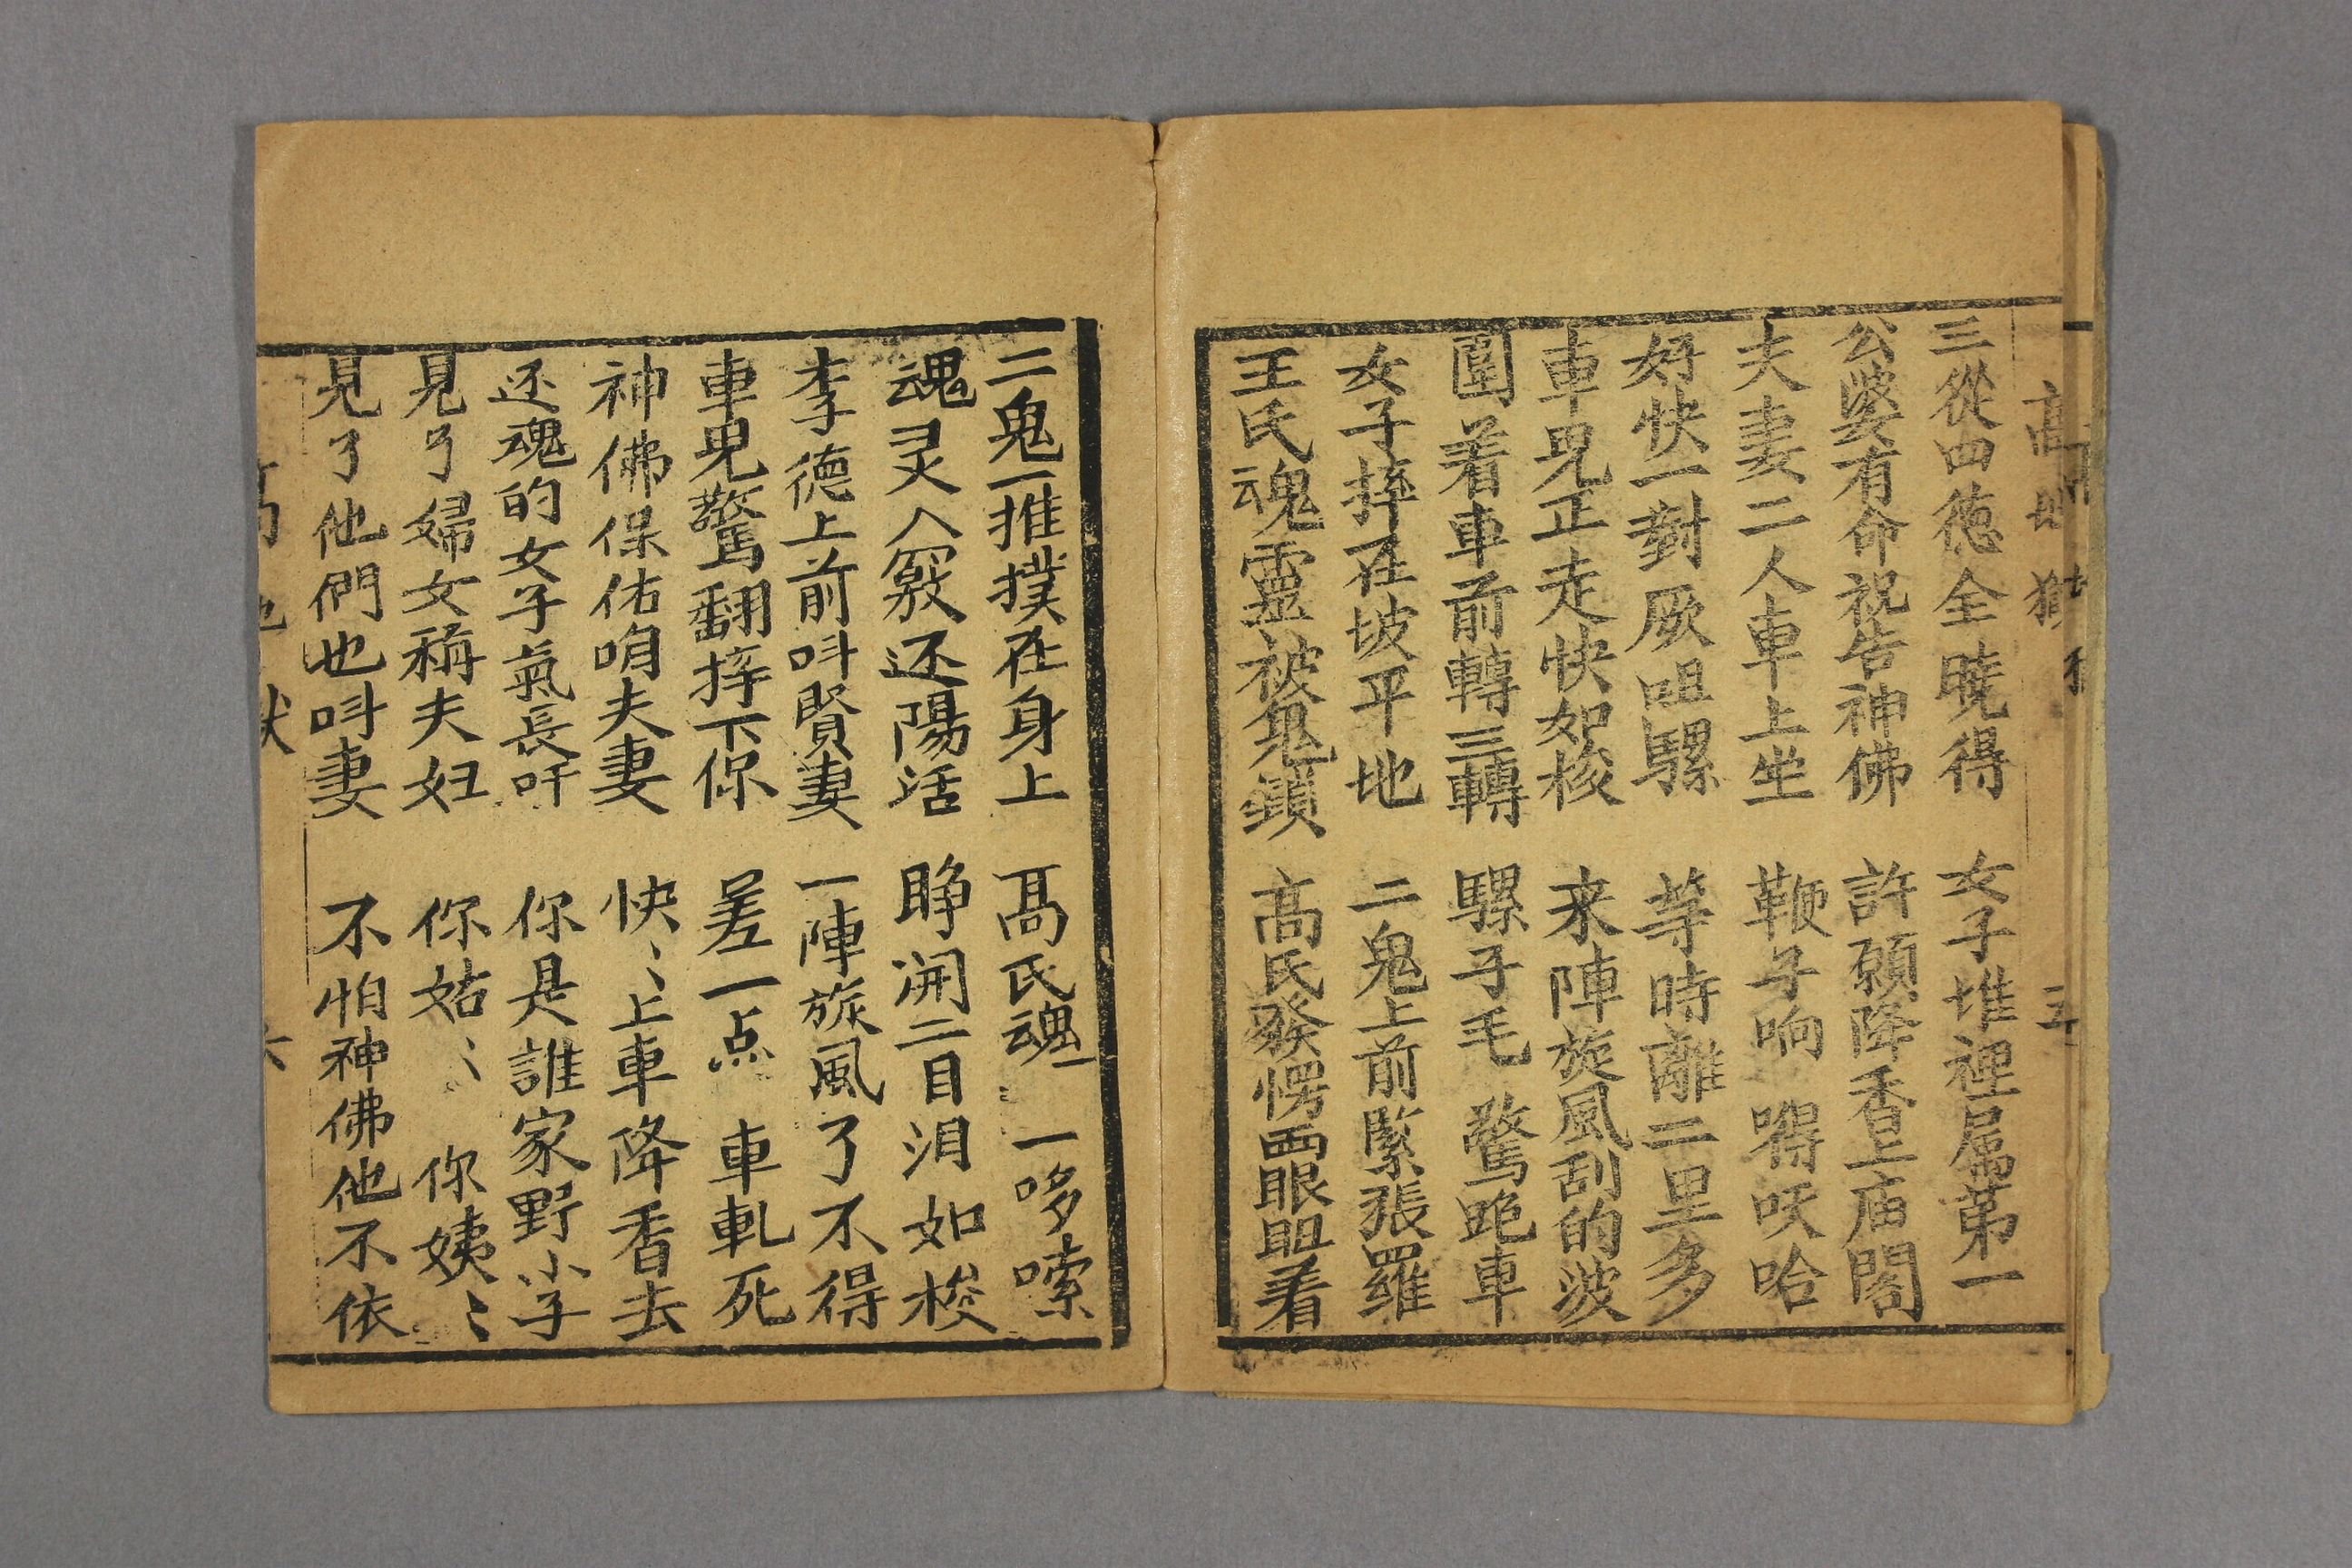 高 地獄 五
三從四德全曉得 女子堆裡属第一
公婆有命祝告神佛 許願降香上庙閣
夫妻二人車上坐 鞭子响嘚呔哈
好快一對厥咀騾 等時離二里多
車児正走快如梭 来陣旋風刮的波
圍着車前轉三轉 騾子毛驚跪車
女子摔在坡平地 二鬼上前緊張羅
王氏魂靈被鬼鎖 高氏發愣两眼眍着
二鬼一推撲在身上 髙氏魂一哆嗦
魂灵入竅还陽活 睁開二目泪如梭
李德上前呌賢妻 一陣旋風了不得
車児驚翻摔下你 差一点車軋死
神佛保佑咱夫妻 快〻上車降香去
还魂的女子氣長吁 你是誰家野小子
見了婦女稱夫妇 你姑〻你姨〻
見了他們也呌妻 不怕神佛他不依